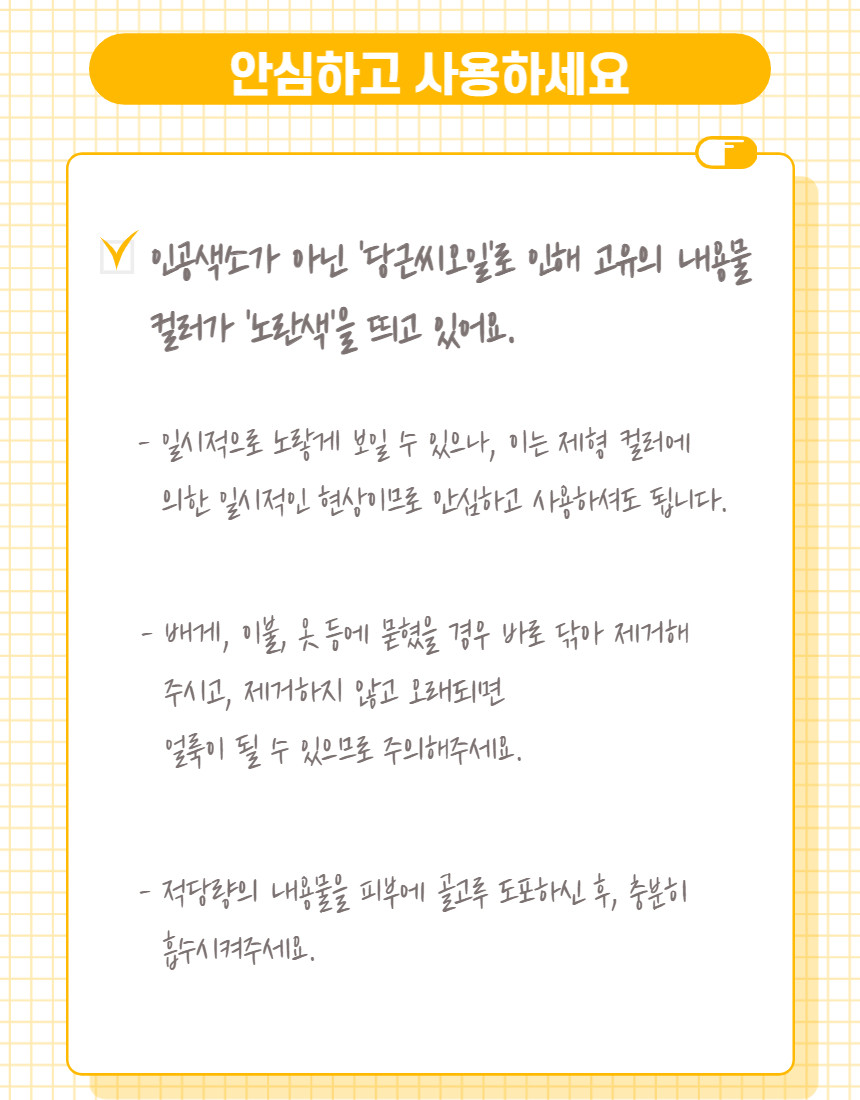 안심하고 사용하세요
인공색소가 아닌 '당근씨오일'로 인해 고유의 내용물
컬러가 '노란색'을 띄고 있어요.
- 일시적으로 노랗게 보일 수 있으나, 이는 제형 컬러에
의한 일시적인 현상이므로 안심하고 사용하셔도 됩니다.
- 배게, 이불, 옷 등에 묻혔을 경우 바로 닦아 제거해
주시고, 제거하지 않고 오래되면
얼룩이 될 수 있으므로 주의해주세요.
- 적당량의 내용물을 피부에 골고루 도포하신 후, 충분히
흡수시켜주세요.